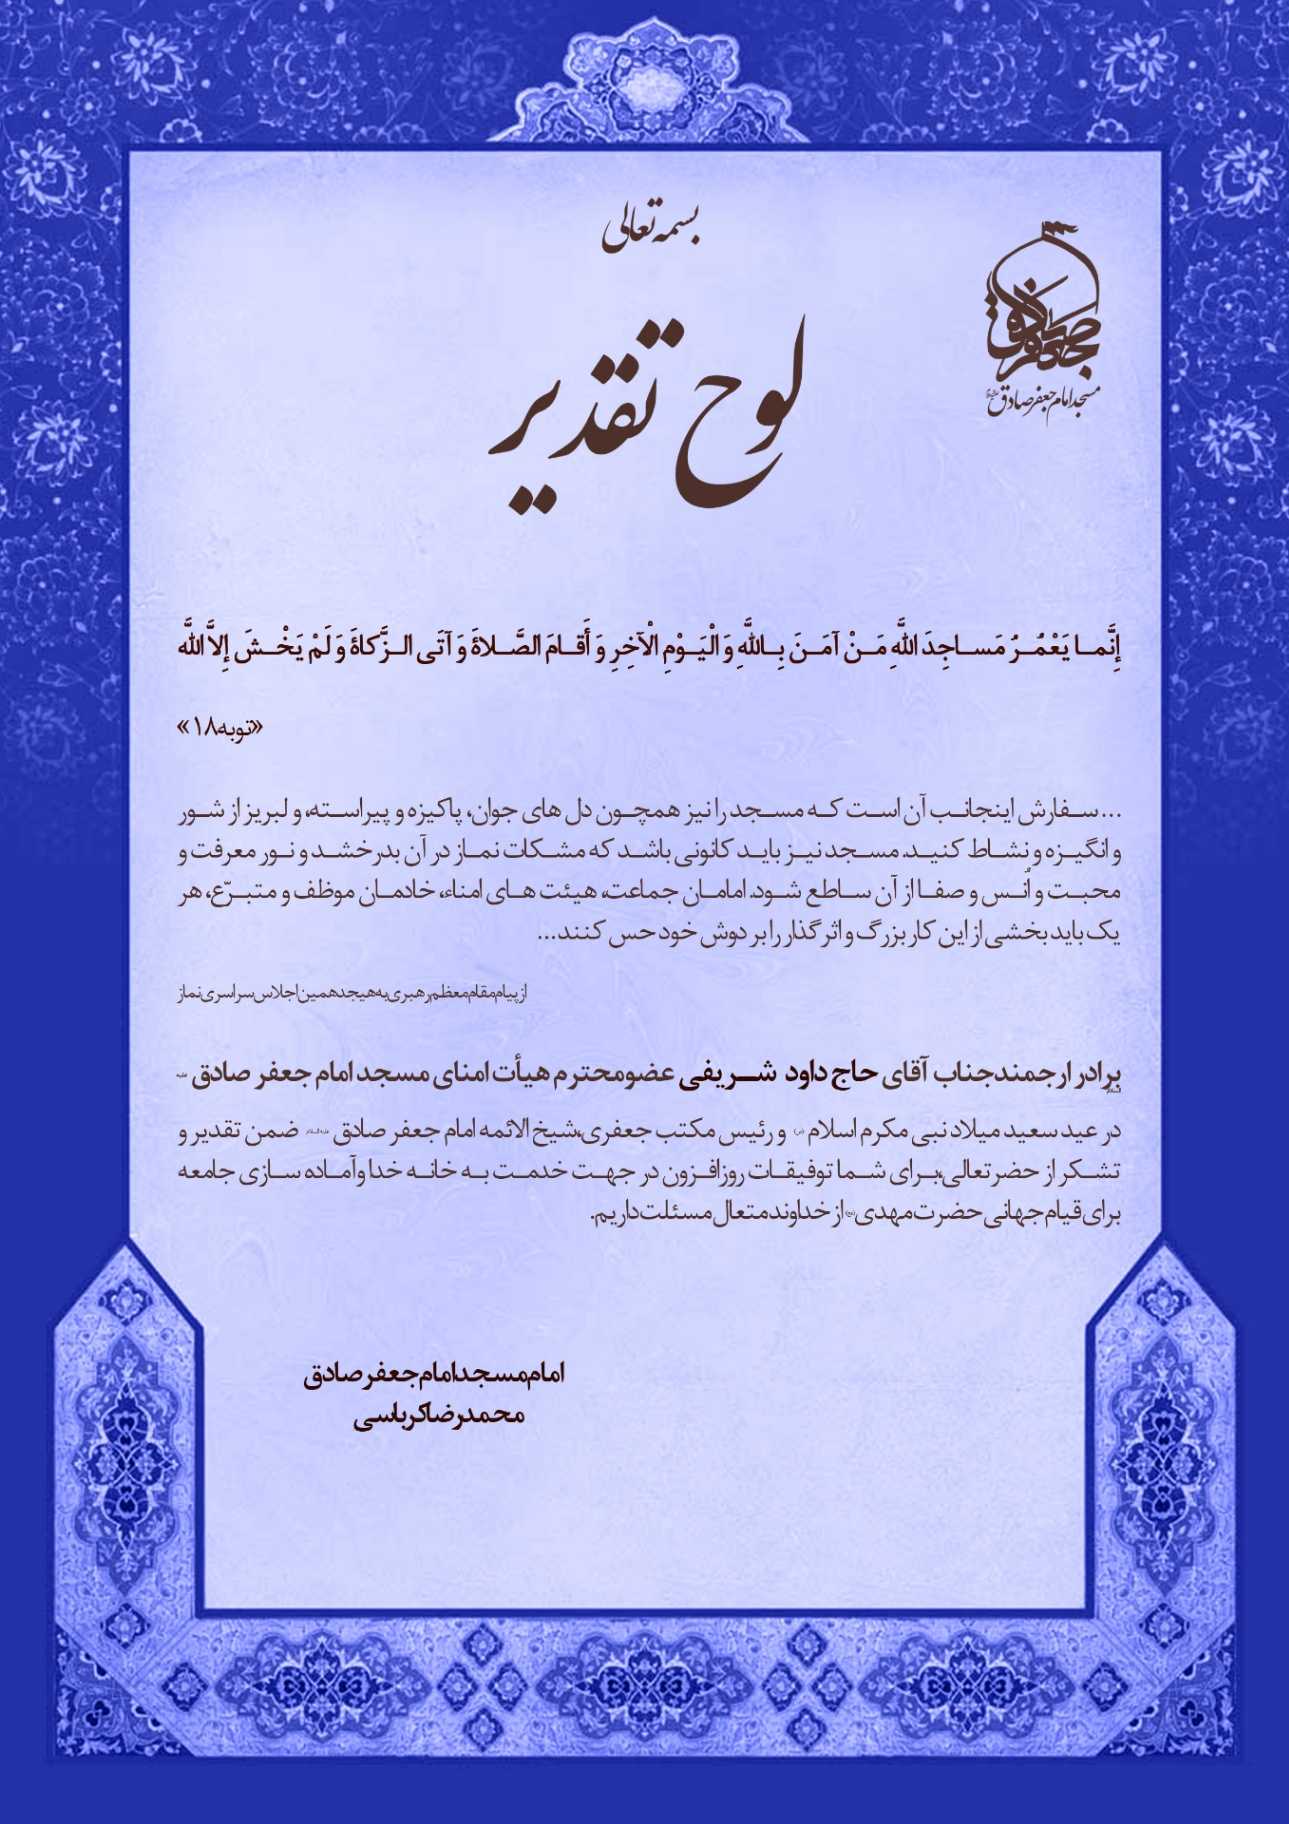 بسمه تعالی
جعفر صادق
مسجد امام جعفر صادق
لوح تقدیر
إِنَّما یَعْمُرُ مَساجِدَ اللَّهِ مَنْ آمَنَ بِاللَّهِ وَ الْیَوْمِ الْآخِرِ وَ أَقامَ الصَّلاةَ وَ آتَی الزَّکاةَ وَ لَمْ یَخْشَ إِلاَّ اللَّه
«توبه۱۸»
... سفارش اینجانب آن است که مسجد را نیز همچون دل های جوان، پاکیزه و پیراسته، و لبریز از شور
و انگیزه و نشاط کنید. مسجد نیز باید کانونی باشد که مشکات نماز در آن بدرخشد و نور معرفت و
محبت و اُنس و صفا از آن ساطع شود. امامان جماعت، هیئت های امناء، خادمان موظف و متبرّع، هر
یک باید بخشی از این کار بزرگ و اثر گذار را بر دوش خود حس کنند...
از پیام مقام معظم رهبری به هیجدهمین اجلاس سراسری نماز
برادر ارجمند جناب آقای حاج داود شریفی عضو محترم هیأت امنای مسجد امام جعفر صادق
در عید سعید میلاد نبی مکرم اسلام و رئیس مکتب جعفری،شیخ الائمه امام جعفر صادق ضمن تقدیر و
تشکر از حضرتعالی،برای شما توفیقات روزافزون در جهت خدمت به خانه خدا وآماده سازی جامعه
برای قیام جهانی حضرت مهدی از خداوند متعال مسئلت داریم.
امام مسجد امام جعفر صادق
محمدرضا کرباسی